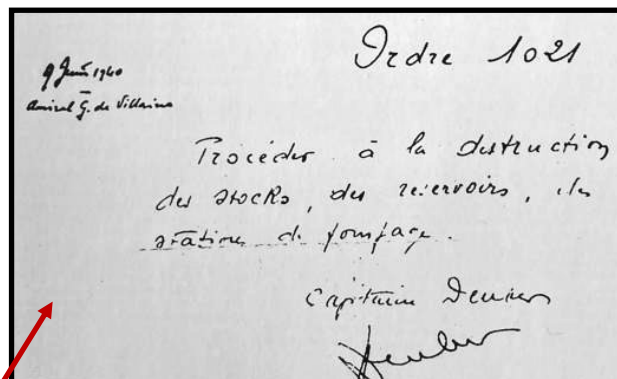 Ordre 1021
9 Juin 1940
Amiral G. de Villaine
Procéder à la destruction
des stocks, des réservoirs, des
stations de pompage.
Capitaine